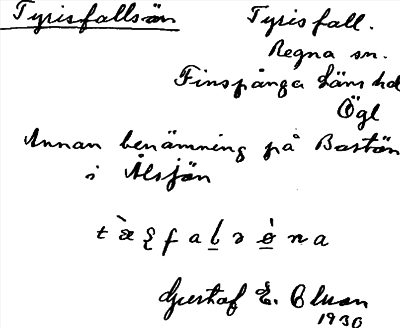 Tyrisfallsön Tyrisfall.
Regna sn.
Finspånga läns hd
Ögl
Annan benämning på Bastön
i Ålsjön
Gustaf E.
1930